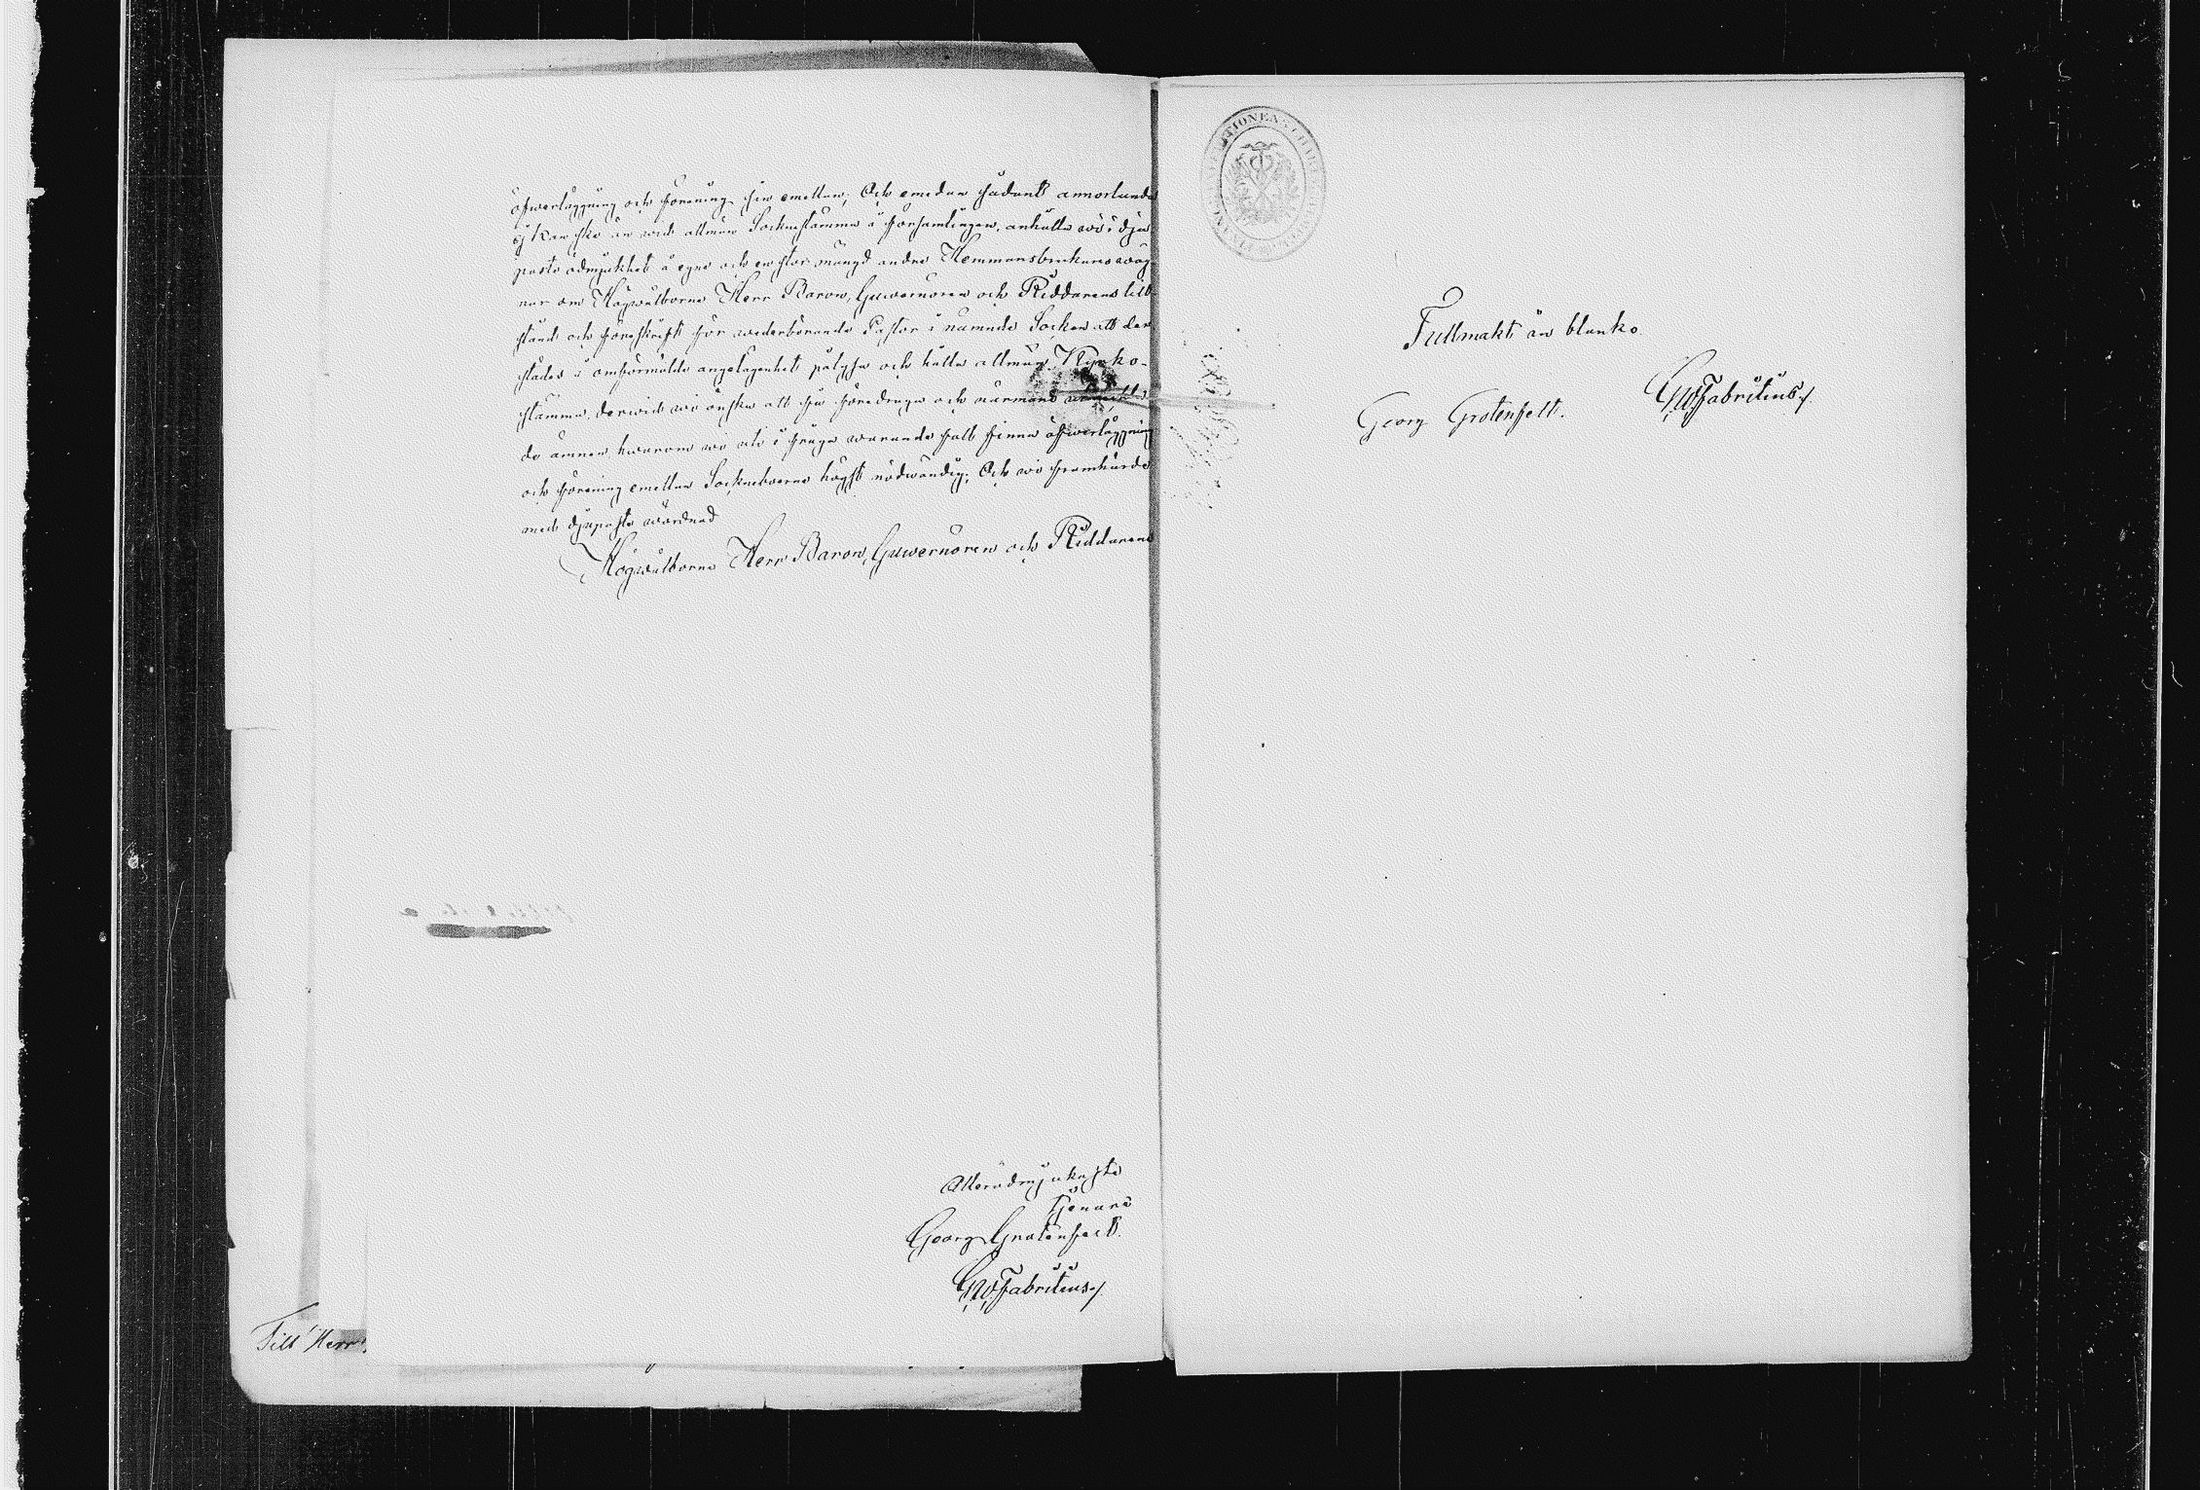 öfwerläggning och förening sin emellan; Och emedan sådant annorlunda
ej kan ske än wid allmän Sockenstämma i församlingen, anhålla wi i dju-
paste ödmjukhet å egne och en stor mängd andra Hemmansbrukares wäg-
nar om Högwälborne Herr Baron, Guwernören och Riddarens till-
stånd och föreskrift för wederbörande Pastor i nämnde Socken att der-
städes i omförmälde angelägenhet pålysa och hålla allmän Kyrko-
stämma, derwid wi önska att få föredraga och närmare
de ämnen hwarom wi uti i fråga warande fall finna öfwerläggning
och förening emellan Sockneboerne högst nödwändig; Och wi framhärda
med djupaste wördnad
Högwälborne Herr Baron, Guwernören och Riddarens
Allerödmjukaste
tjenare
Georg Grotenfelt.
GWFabritius
Till Herr
Fullmakt in blanko
Georg Grotenfelt.
GWFabritius